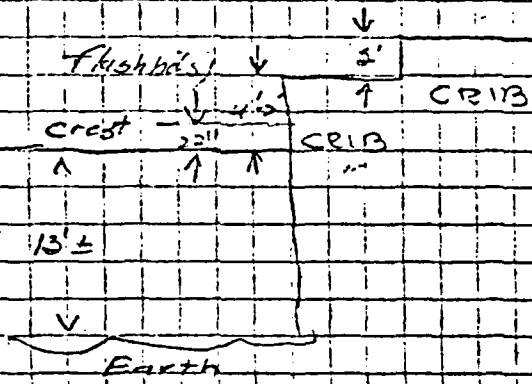 2'
Flashbds
CRIB
4'2"
Crest
22"
CRIB
13'±
Earth